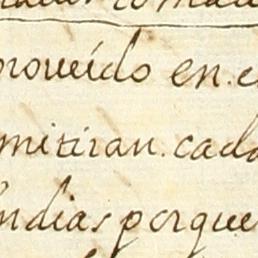 proueído en e
mitiran cada
Indias porque